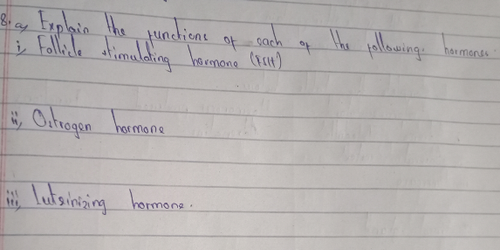 8. a, Explain the functions of each of the following hormones.
i, Follicle stimulating hormone (FSH)
ii, Ostrogen hormone
iii, lutsinizing hormone.